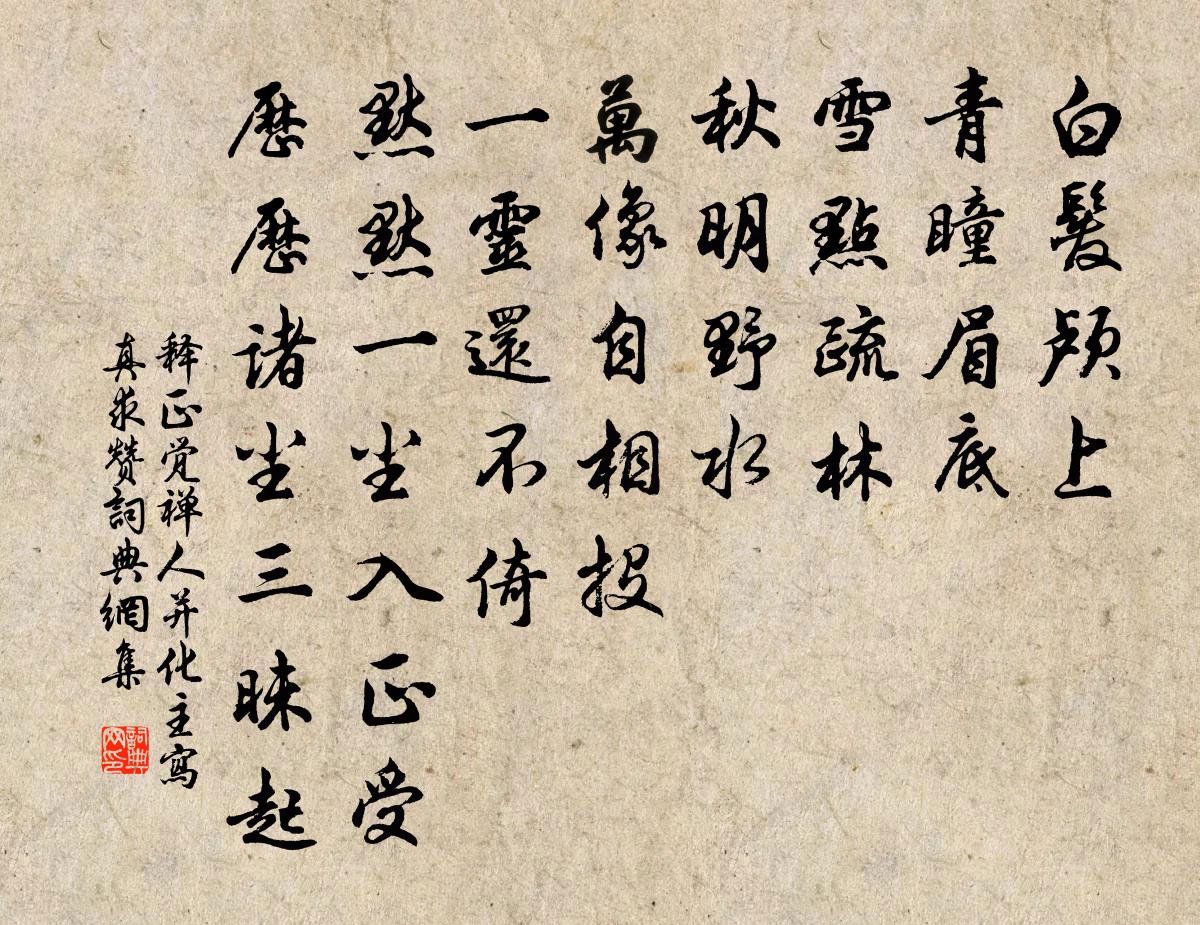 白髮颅上
青瞳眉底
雪點疏林
秋明野水
萬像自相投
一靈還不倚
默默一尘入正受
歷歷诸尘三昧起
释正觉禅人并化主寫
真求赞詞典網集
詞典
网印